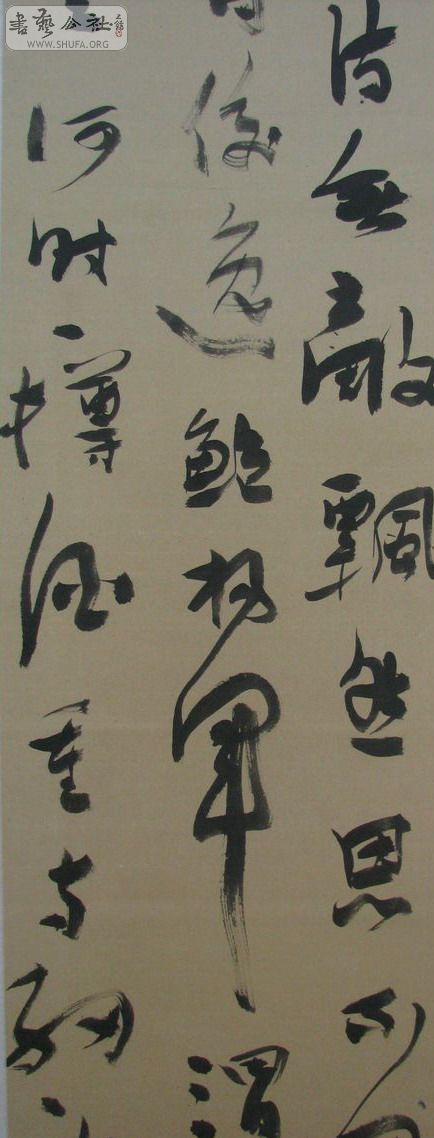 書藝公社
WWW.SHUFA.ORG
詩無敵飄然思不
俊逸鮑參軍渭
何時一樽酒重與細